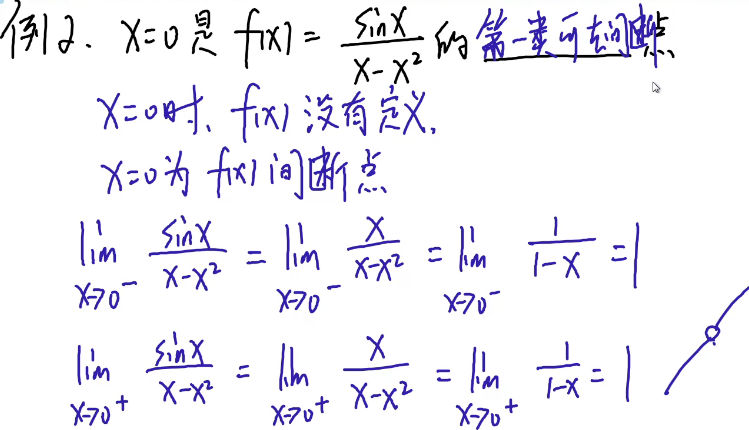 例2. x=0是 f(x) = sinx/(x-x²) 的第一类可去间断点
x=0时, f(x)没有定义,
x=0为 f(x)间断点
lim x→0⁻ sinx/(x-x²) = lim x→0⁻ x/(x-x²) = lim x→0⁻ 1/(1-x) = 1
lim x→0⁺ sinx/(x-x²) = lim x→0⁺ x/(x-x²) = lim x→0⁺ 1/(1-x) = 1